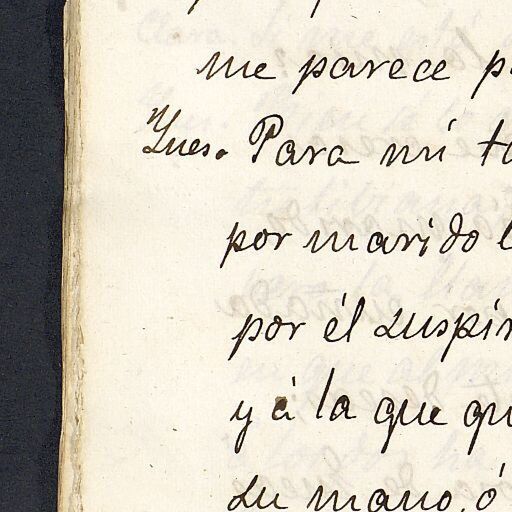 me parece p
Ynes. Para mí to
por marido l
por él suspir
y á la que qu
su mano, ó